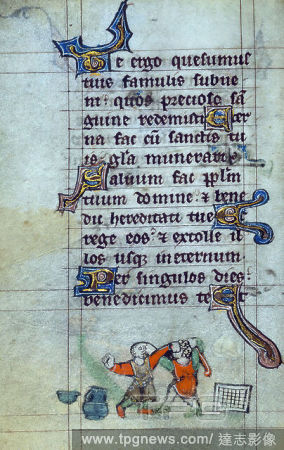 Te ergo quesumus
tuis famulis subue
ni: quos precioso sā
guine redemisti Eter
na fac cū sanctis tu
is gl̄a munerari
Saluum fac pp̄lm
tuum domine: & bene
dic hereditati tue Et
rege eos: & extolle il
los usq̄ in eternum
Per singulos dies:
benedicimus te Et
www.tpgnews.com/ 達志影像